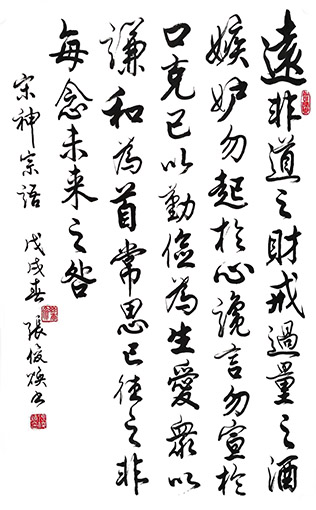 遠非道之財戒過量之酒
嫉妒勿起於心讒言勿宣於
口克己以勤儉為生愛衆以
謙和為首常思已往之非
每念未来之咎
宋神宗語 戊戌春 張俊煥书